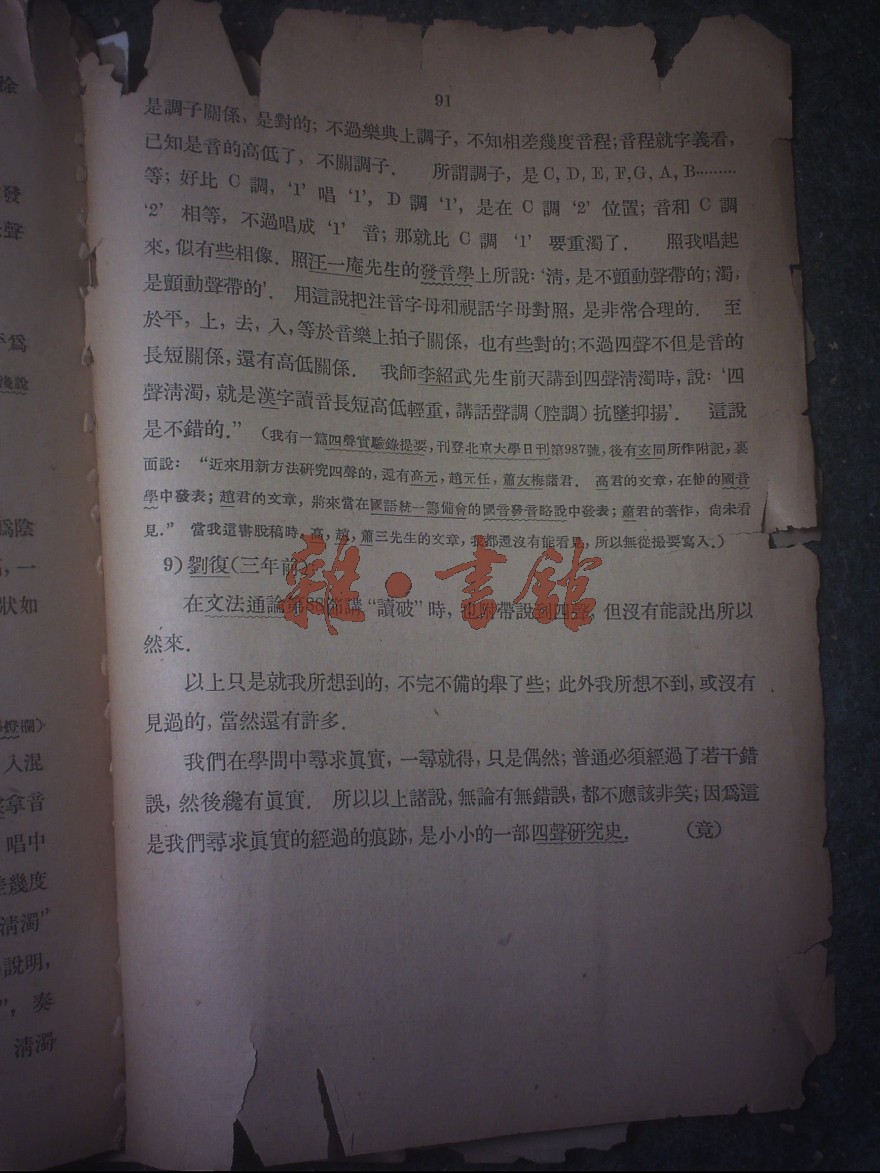 91
是調子關係, 是對的; 不過樂典上調子, 不知相差幾度音程; 音程就字義看,
已知是音的高低了, 不關調子. 所謂調子, 是 C, D, E, F, G, A, B………
等; 好比 C 調, ‘1’ 唱 ‘1’, D 調 ‘1’, 是在 C 調 ‘2’ 位置; 音和 C 調
‘2’ 相等, 不過唱成 ‘1’ 音; 那就比 C 調 ‘1’ 要重濁了. 照我唱起
來, 似有些相像. 照汪一庵先生的發音學上所說: ‘淸, 是不顫動聲帶的; 濁,
是顫動聲帶的’. 用這說把注音字母和視話字母對照, 是非常合理的. 至
於平, 上, 去, 入, 等於音樂上拍子關係, 也有些對的; 不過四聲不但是音的
長短關係, 還有高低關係. 我師李紹武先生前天講到四聲淸濁時, 說: ‘四
聲淸濁, 就是漢字讀音長短高低輕重, 講話聲調 (腔調) 抗墜抑揚’. 這說
是不錯的.” (我有一篇四聲實驗錄提要, 刊登北京大學日刊第987號, 後有玄同所作附記, 裏
面說: “近來用新方法硏究四聲的, 還有高元, 趙元任, 蕭友梅諸君. 高君的文章, 在他的國音
學中發表; 趙君的文章, 將來當在國語統一籌備會的國音發音略說中發表; 蕭君的著作, 尙未看
見.” 當我這書脫稿時, 高, 趙, 蕭三先生的文章, 我都還沒有能看見, 所以無從撮要寫入.)
9) 劉復 (三年前)
在文法通論第88節講 “讀破” 時, 也附帶說到四聲, 但沒有能說出所以
然來.
以上只是就我所想到的, 不完不備的舉了些; 此外我所想不到, 或沒有
見過的, 當然還有許多.
我們在學問中尋求眞實, 一尋就得, 只是偶然; 普通必須經過了若干錯
誤, 然後纔有眞實. 所以以上諸說, 無論有無錯誤, 都不應該非笑; 因爲這
是我們尋求眞實的經過的痕跡, 是小小的一部四聲硏究史. (竟)
雜·書館
發
聲
爲
後說
爲陰
, 一
狀如
燈欄)
入混
拿音
唱中
幾度
淸濁”
說明,
”, 奏
淸濁